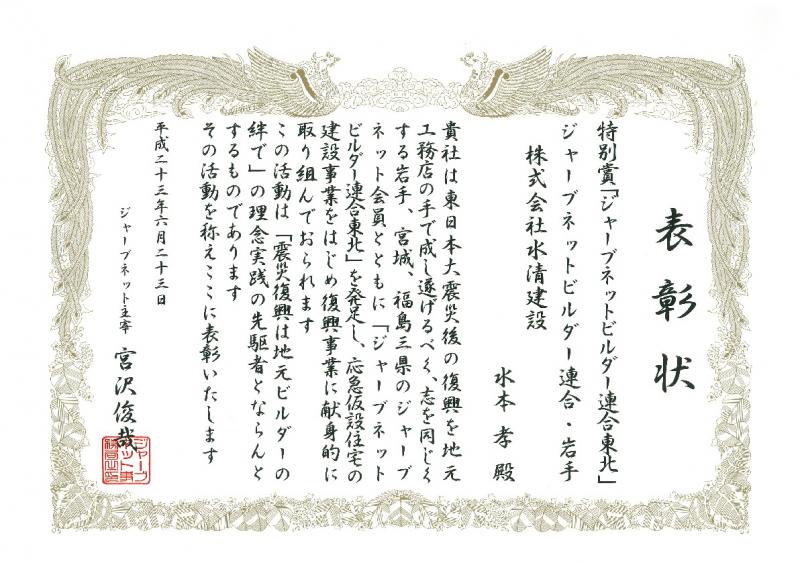 表彰状
特別賞「ジャーブネットビルダー連合東北」
ジャーブネットビルダー連合・岩手
株式会社水清建設
水本孝殿
貴社は東日本大震災後の復興を地元
工務店の手で成し遂げるべく、志を同じく
する岩手、宮城、福島三県のジャーブ
ネット会員とともに「ジャーブネット
ビルダー連合東北」を発足し、応急仮設住宅の
建設事業をはじめ復興事業に献身的に
取り組んでおられます
この活動は「震災復興は地元ビルダーの
絆で」の理念実践の先駆者とならんと
するものであります
その活動を称えここに表彰いたします
平成二十三年六月二十三日
ジャーブネット主宰
宮沢俊哉